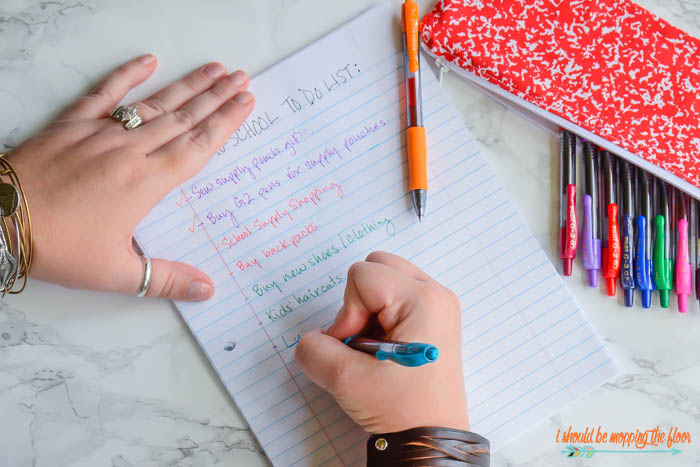 SCHOOL TO DO LIST:
- Sew supply pouch gifts
- Buy G2 pens for supply pouches
- School Supply Shopping
- Buy backpacks
- Buy new shoes/clothing
- Kids' haircuts
- Lu
i should be mopping the floor